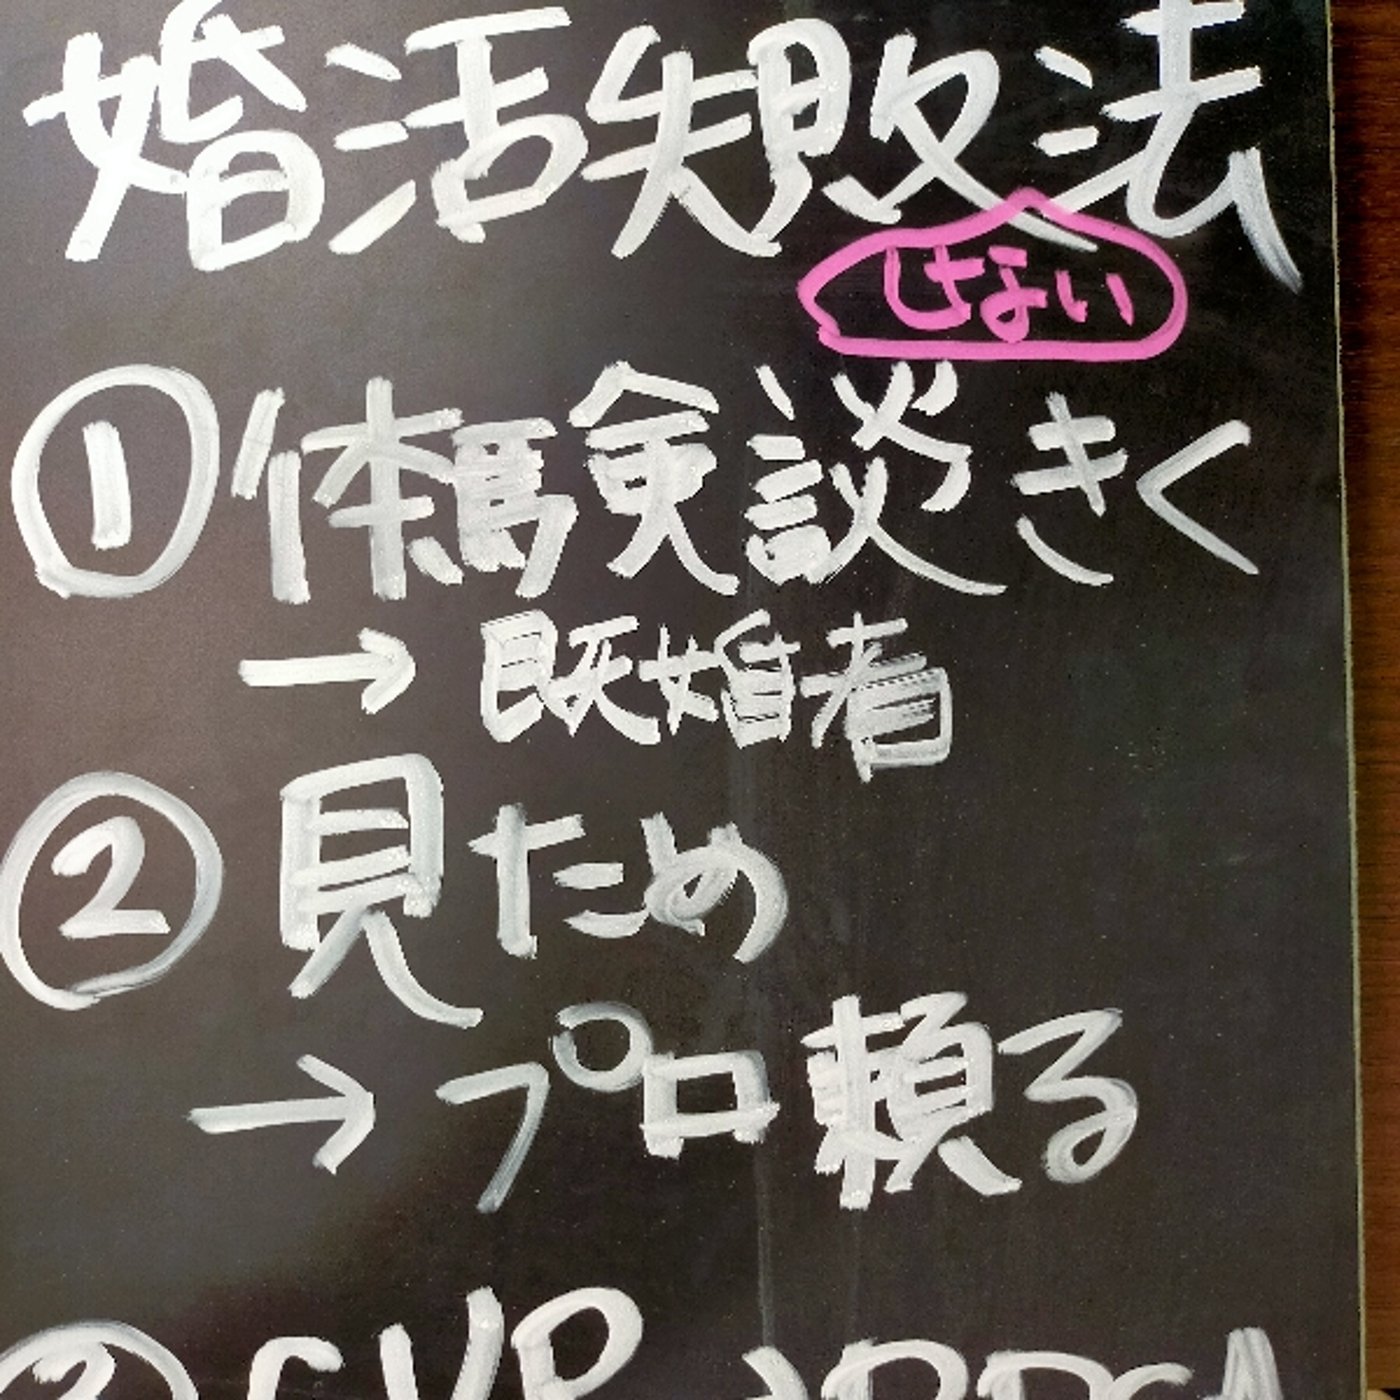 婚活失敗法
しない
①体験談きく
→既婚者
②見ため
→プロ頼る